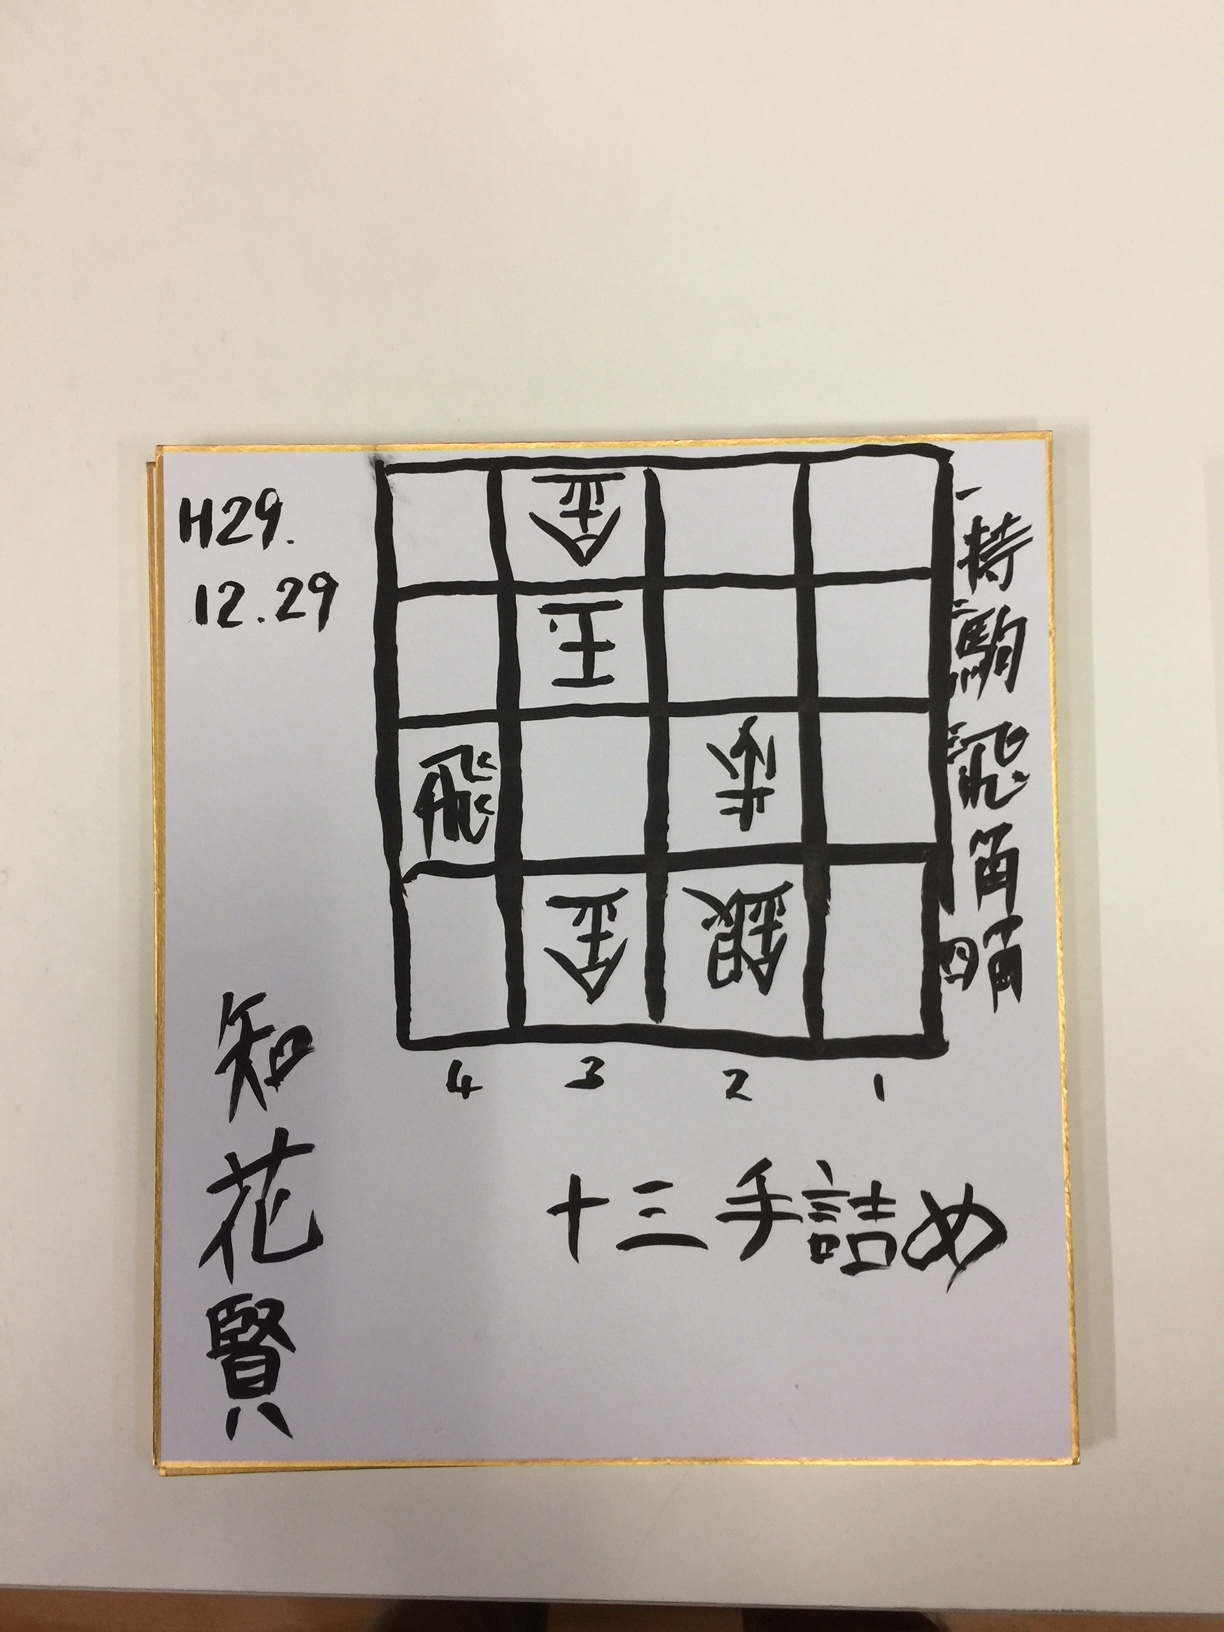 H29.
12.29
金
王
飛 歩
金 銀
4 3 2 1
一
二
三
四
持駒 飛角角
十三手詰め
知花賢